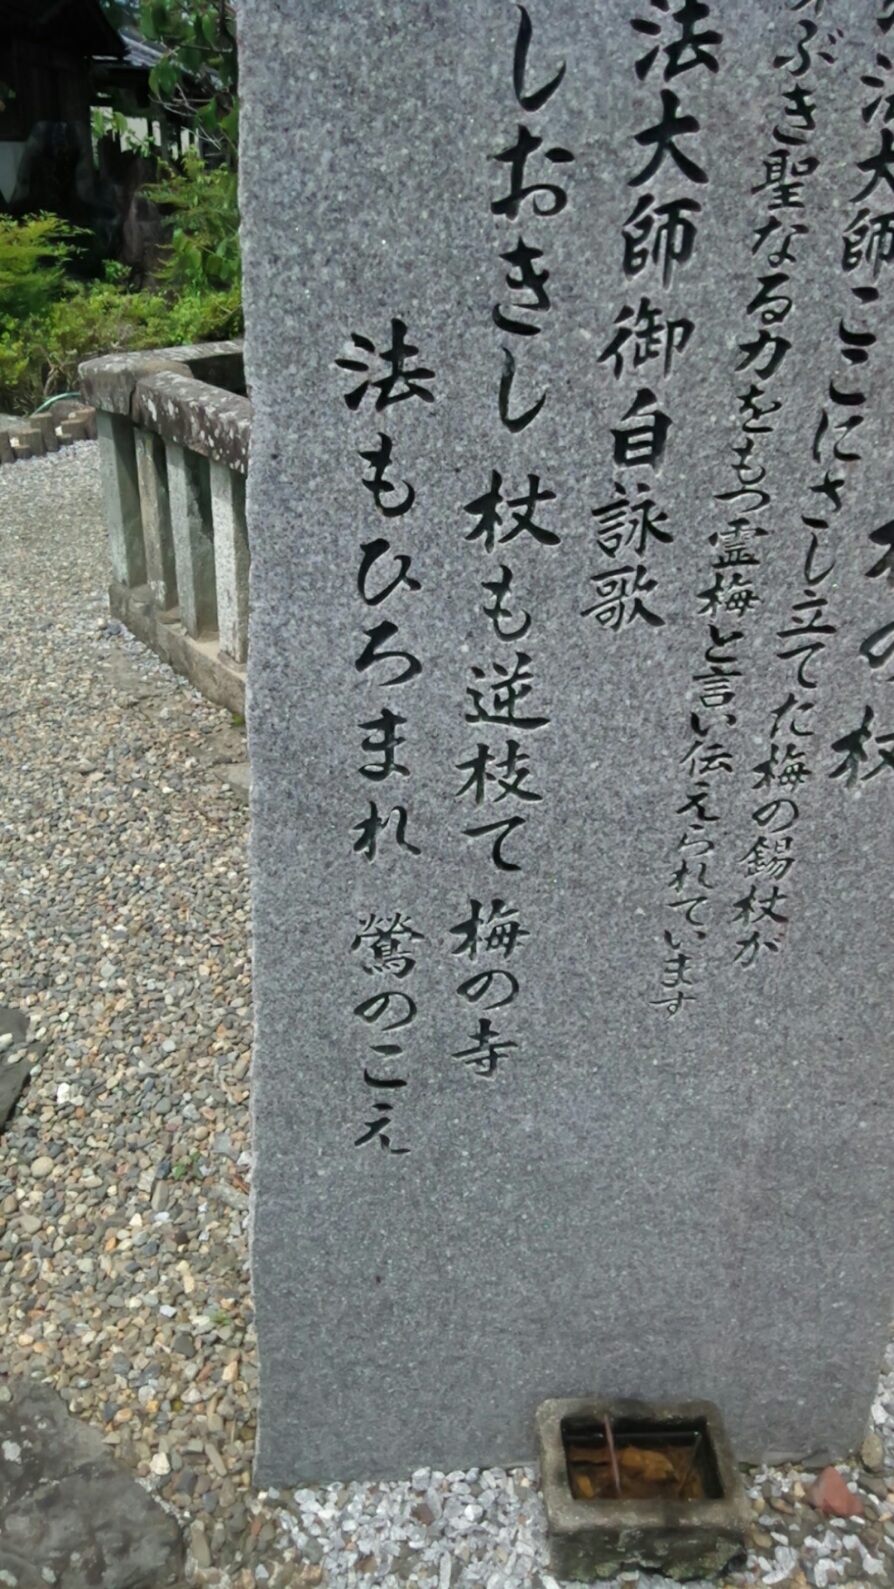 の杖
法大師ここにさし立てた梅の錫杖が
ぶき聖なる力をもつ霊梅と言い伝えられています
法大師御自詠歌
しおきし 杖も逆枝て 梅の寺
法もひろまれ 鶯のこえ